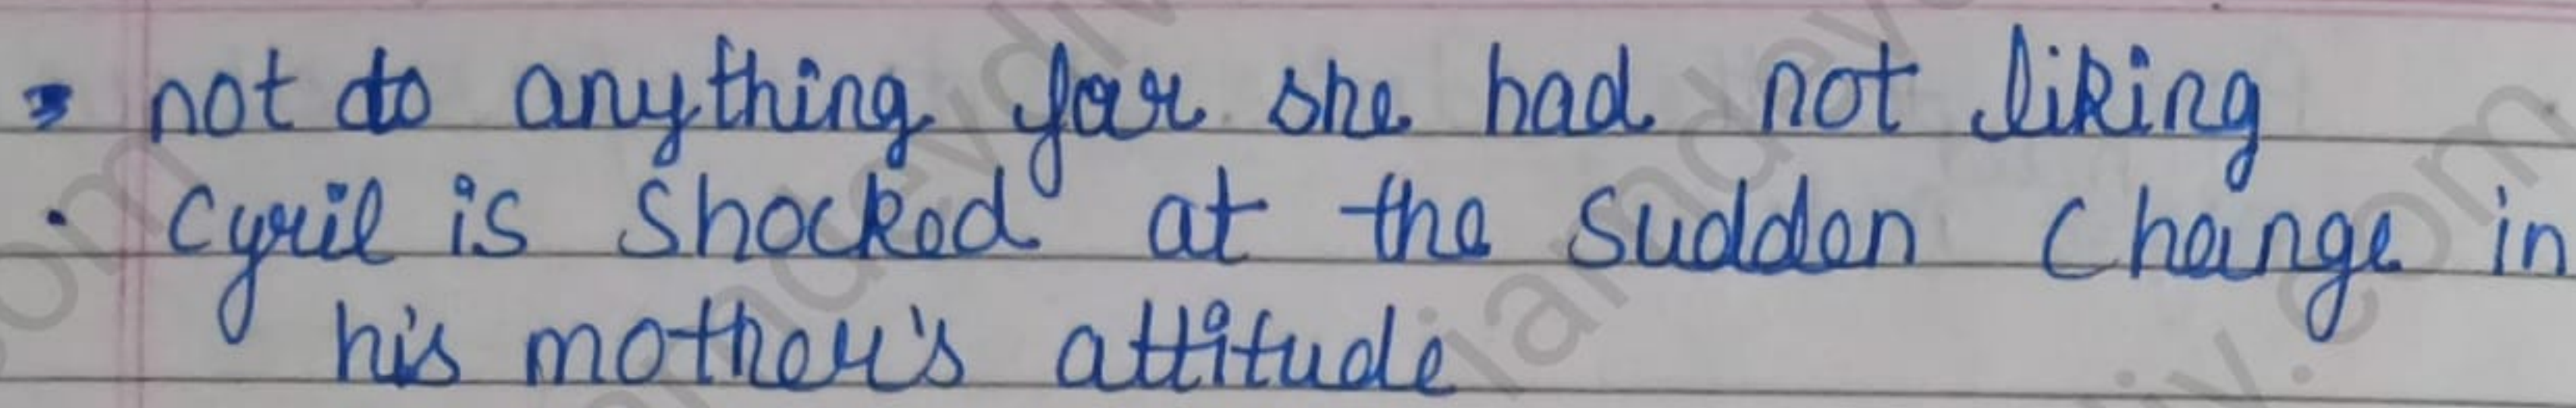 not do anything for she had not liking
• Cyril is shocked at the sudden change in
his mother's attitude